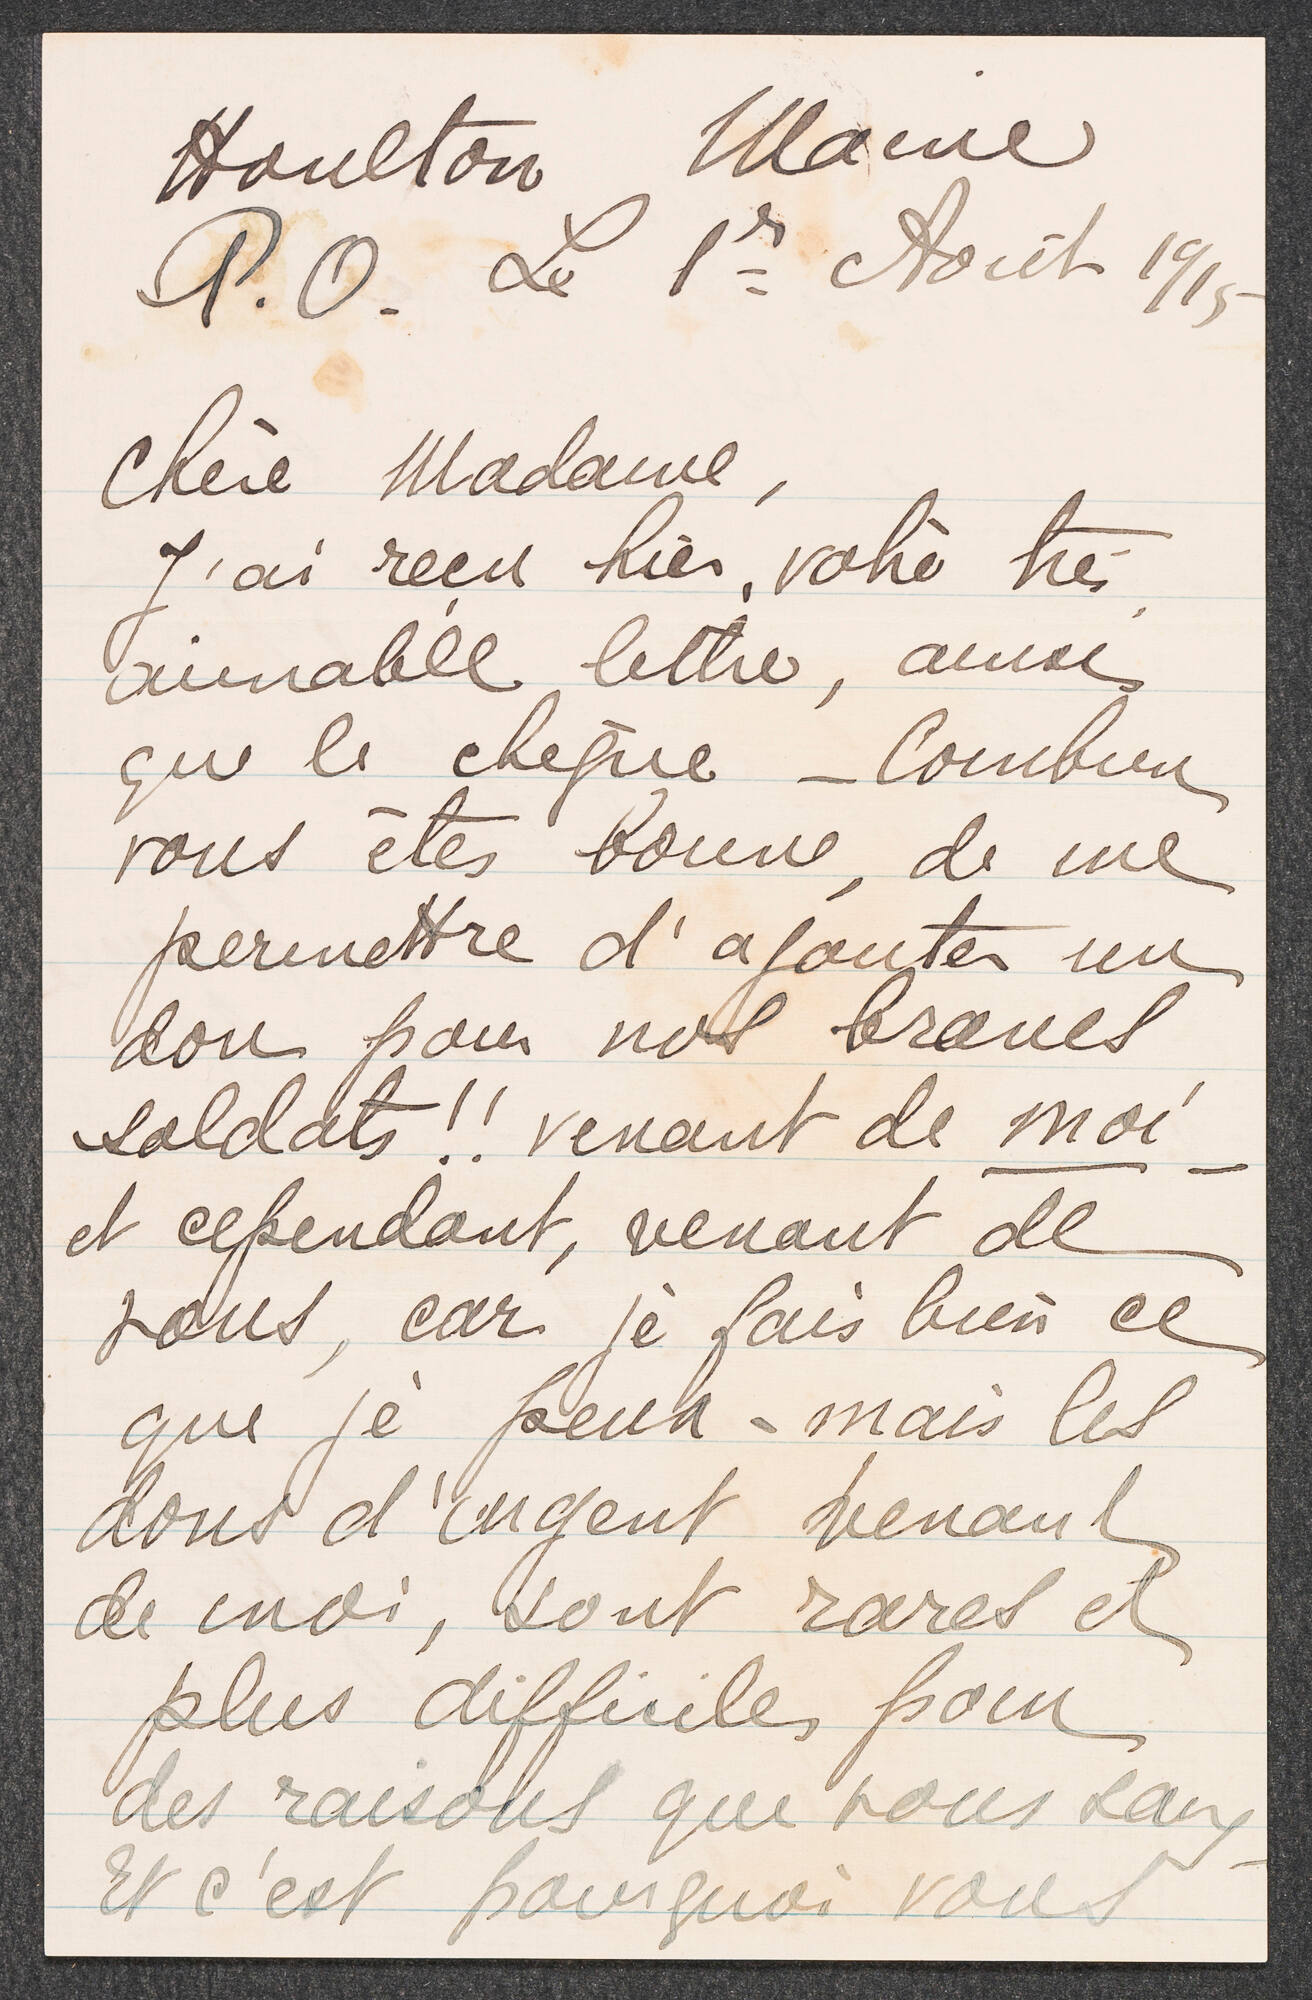 Houlton Maine
P.O. Le 1r Août 1915
Chère Madame,
J'ai reçu hier, votre très
aimable lettre, ainsi
que le chèque – Combien
vous êtes bonne, de me
permettre d'ajouter un
don pour nos braves
soldats!! venant de moi –
et cependant, venant de
vous, car je fais bien ce
que je peux – mais les
dons d'argent venant
de moi, sont rares et
plus difficiles pour
des raisons que vous
Et c'est pourquoi vous